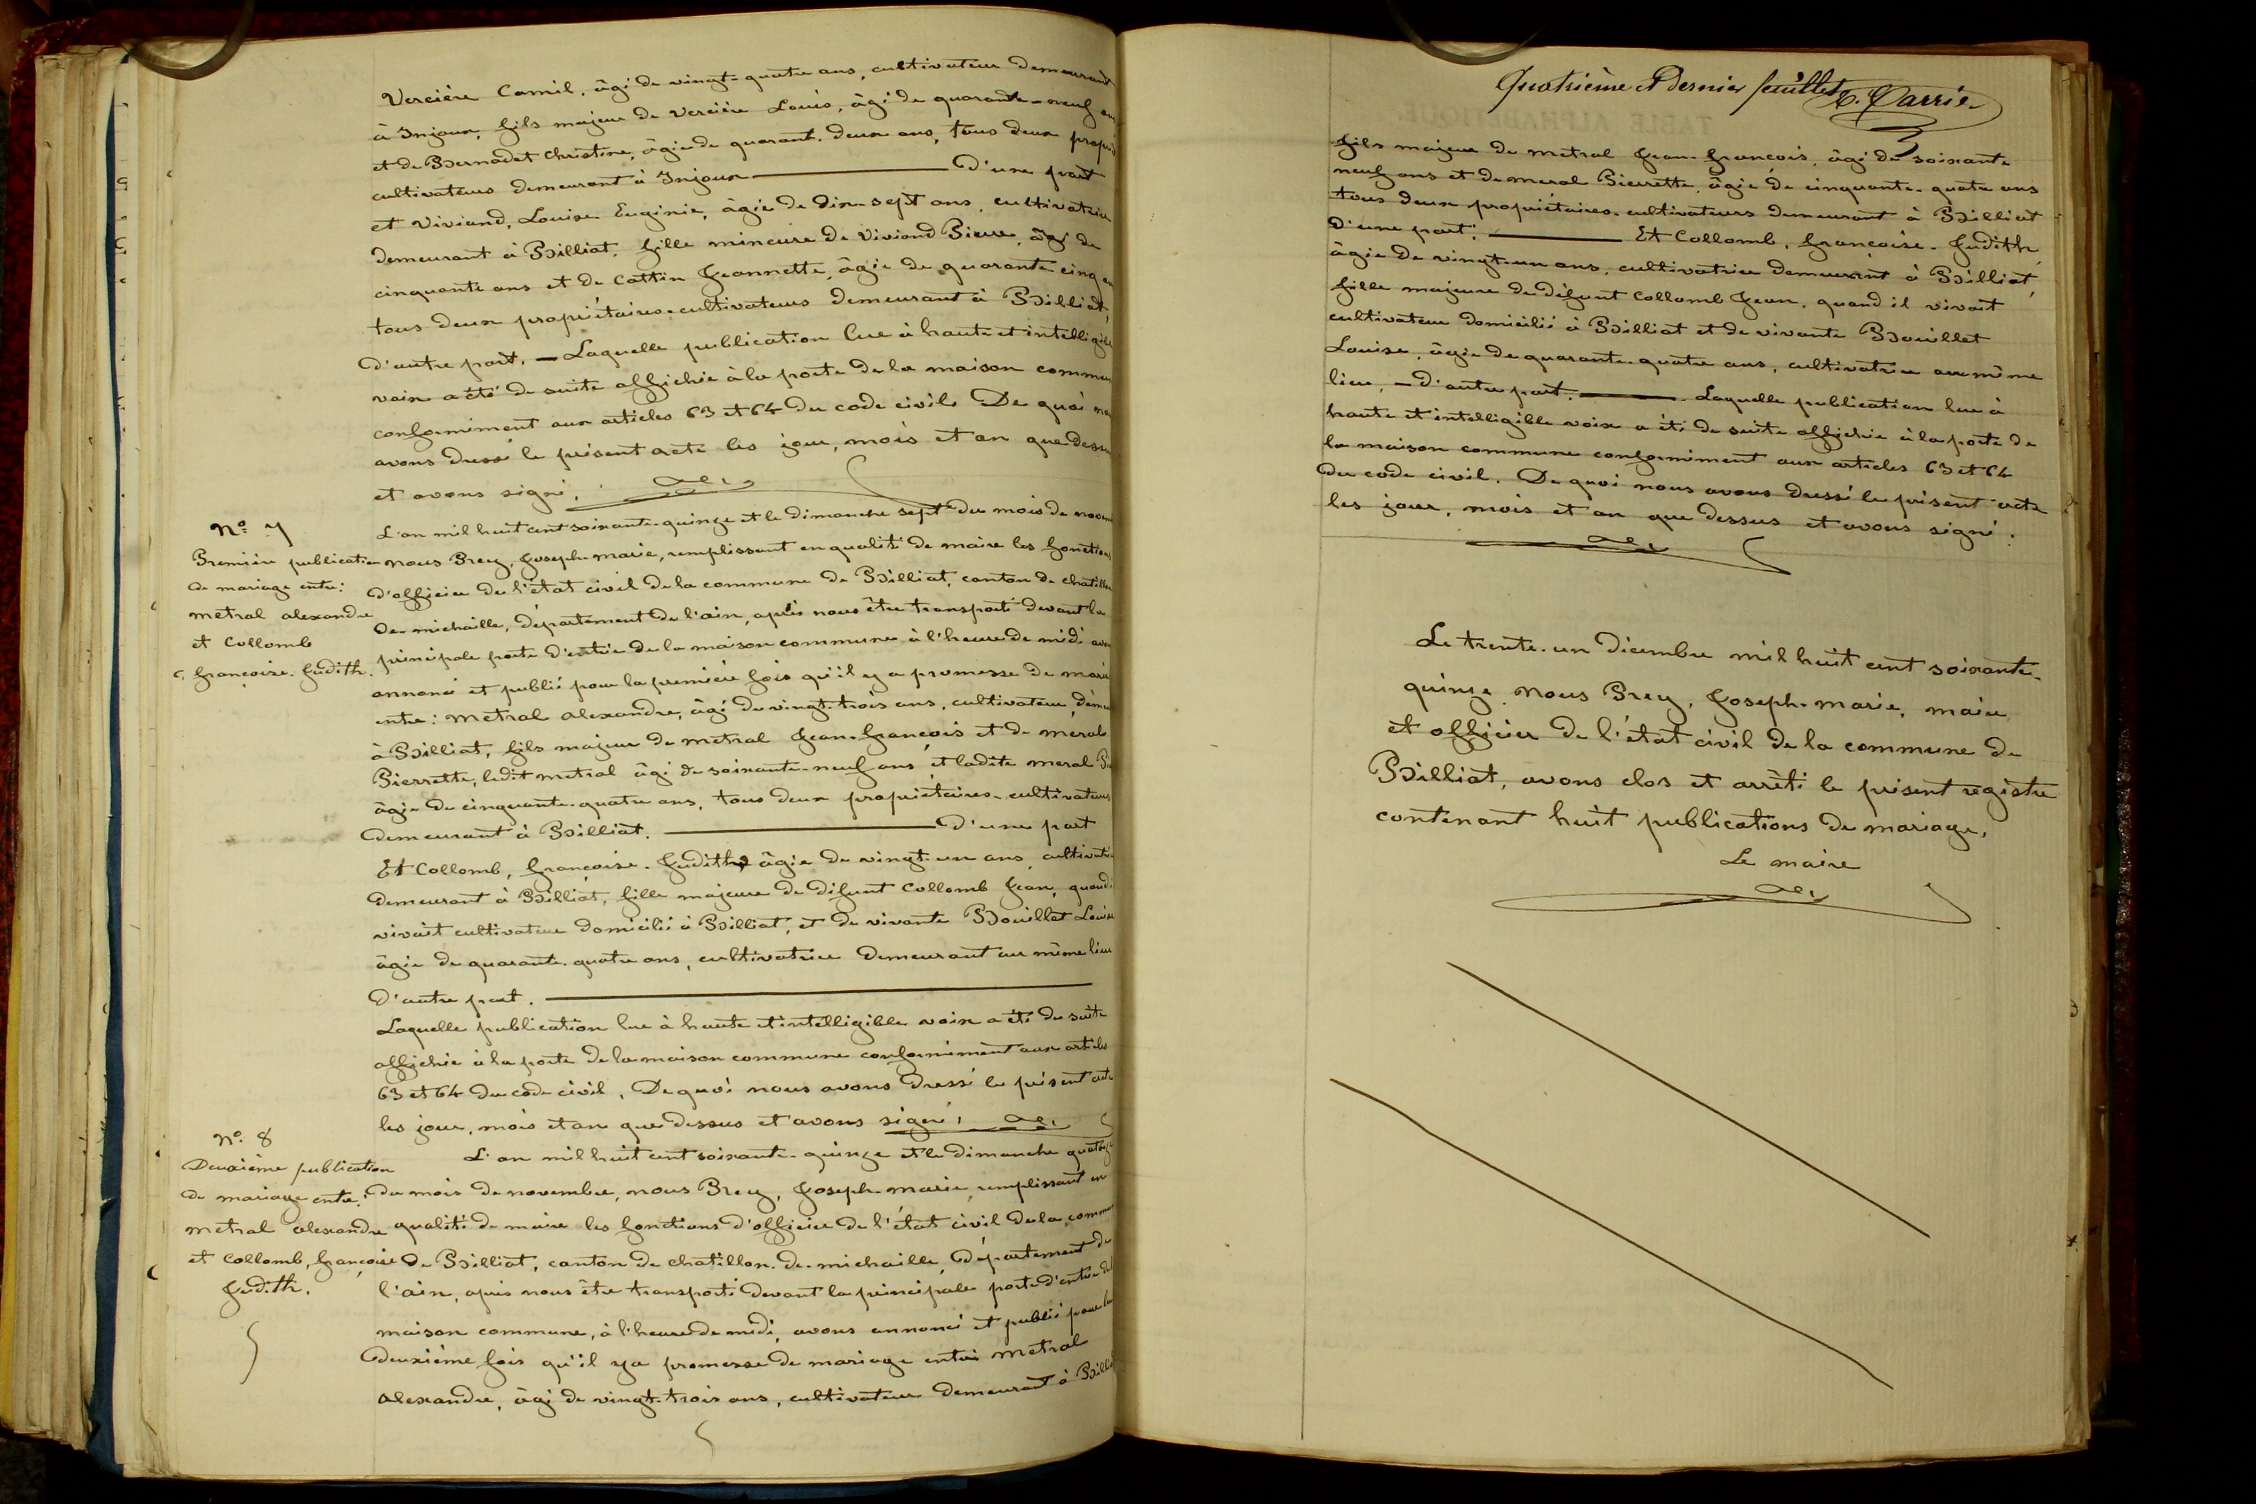 Vercière Camil, âgé de vingt-quatre ans, cultivateur demeurant
à Injoux, fils majeur de Vercière Louis, âgé de quarante-neuf ans
et de Bernadet Christine, âgée de quarant. deux ans, tous deux propri
cultivateurs demeurant à Injoux — D'une part
et Viviand, Louise Eugénie, âgée de dix-sept ans, cultivatrice
demeurant à Billiat, fille mineure de Viviand Pierre, âgé de
cinquante ans et de Cattin Jeannette, âgée de quarante cinq an
tous deux propriétaires-cultivateurs demeurant à Billiat,
d'autre part. — Laquelle publication lue à haute et intelligible
voix a été de suite affichée à la porte de la maison commun
conformément aux articles 63 et 64 du code civil. De quoi nous
avons dressé le présent acte les jour, mois et an que dessus
et avons signé.
N° 7
Première publication
de mariage entre:
Metral alexandre
et Collomb
françoise-Judith.
L'an mil huit cent soixante-quinze et le dimanche sept du mois de novem
nous Brey, Joseph-marie, remplissant en qualité de maire les fonctions
d'officier de l'état civil de la commune de Billiat, canton de chatillon
de-michaille, département de l'ain, après nous être transporté devant la
principale porte d'entrée de la maison commune à l'heure de midi avons
annoncé et publié pour la première fois qu'il y a promesse de mari
entre: Metral alexandre, âgé de vingt-trois ans, cultivateur, demeu
à Billiat, fils majeur de metral Jean-françois et de meral
Pierrette, ledit metral âgé de soixante-neuf ans et ladite meral Pi
âgée de cinquante-quatre ans, tous deux propriétaires-cultivateurs
demeurant à Billiat. — D'une part
Et Collomb, françoise-Judith, âgée de vingt-un ans, cultivatri
demeurant à Billiat, fille majeure de défunt Collomb Jean, quand i
vivait cultivateur domicilié à Billiat, et de vivante Bouillet Louise
âgée de quarante-quatre ans, cultivatrice demeurant au même lieu
d'autre part. —
Laquelle publication lue à haute et intelligible voix a été de suite
affichée à la porte de la maison commune conformément aux articles
63 et 64 du code civil. De quoi nous avons dressé le présent acte
les jour, mois et an que dessus et avons signé.
N° 8
Deuxième publication
de mariage entre:
Metral alexandre
et Collomb, françoise
Judith.
L'an mil huit cent soixante-quinze et le dimanche quatorze
du mois de novembre, nous Brey, Joseph-marie, remplissant en
qualité de maire les fonctions d'officier de l'état civil de la commun
de Billiat, canton de chatillon-de-michaille, département de
l'ain, après nous être transporté devant la principale porte d'entrée de l
maison commune, à l'heure de midi, avons annoncé et publié pour la
deuxième fois qu'il y a promesse de mariage entre Metral
alexandre, âgé de vingt-trois ans, cultivateur demeurant à Billiat
Quatrième et dernier feuillet
fils majeur de metral Jean-françois, âgé de soixante
neuf ans et de meral Pierrette, âgée de cinquante-quatre ans
tous deux propriétaires-cultivateurs demeurant à Billiat
D'une part; — Et Collomb, françoise-Judith
âgée de vingt-un ans, cultivatrice demeurant à Billiat,
fille majeure de défunt Collomb Jean, quand il vivait
cultivateur domicilié à Billiat et de vivante Bouillet
Louise, âgée de quarante-quatre ans, cultivatrice au même
lieu, — d'autre part. — Laquelle publication lue à
haute et intelligible voix a été de suite affichée à la porte de
la maison commune conformément aux articles 63 et 64
du code civil. De quoi nous avons dressé le présent acte
les jour, mois et an que dessus et avons signé.
Le trente-un décembre mil huit cent soixante-
quinze, nous Brey, Joseph-marie, maire
et officier de l'état civil de la commune de
Billiat, avons clos et arrêté le présent registre
contenant huit publications de mariage.
Le maire